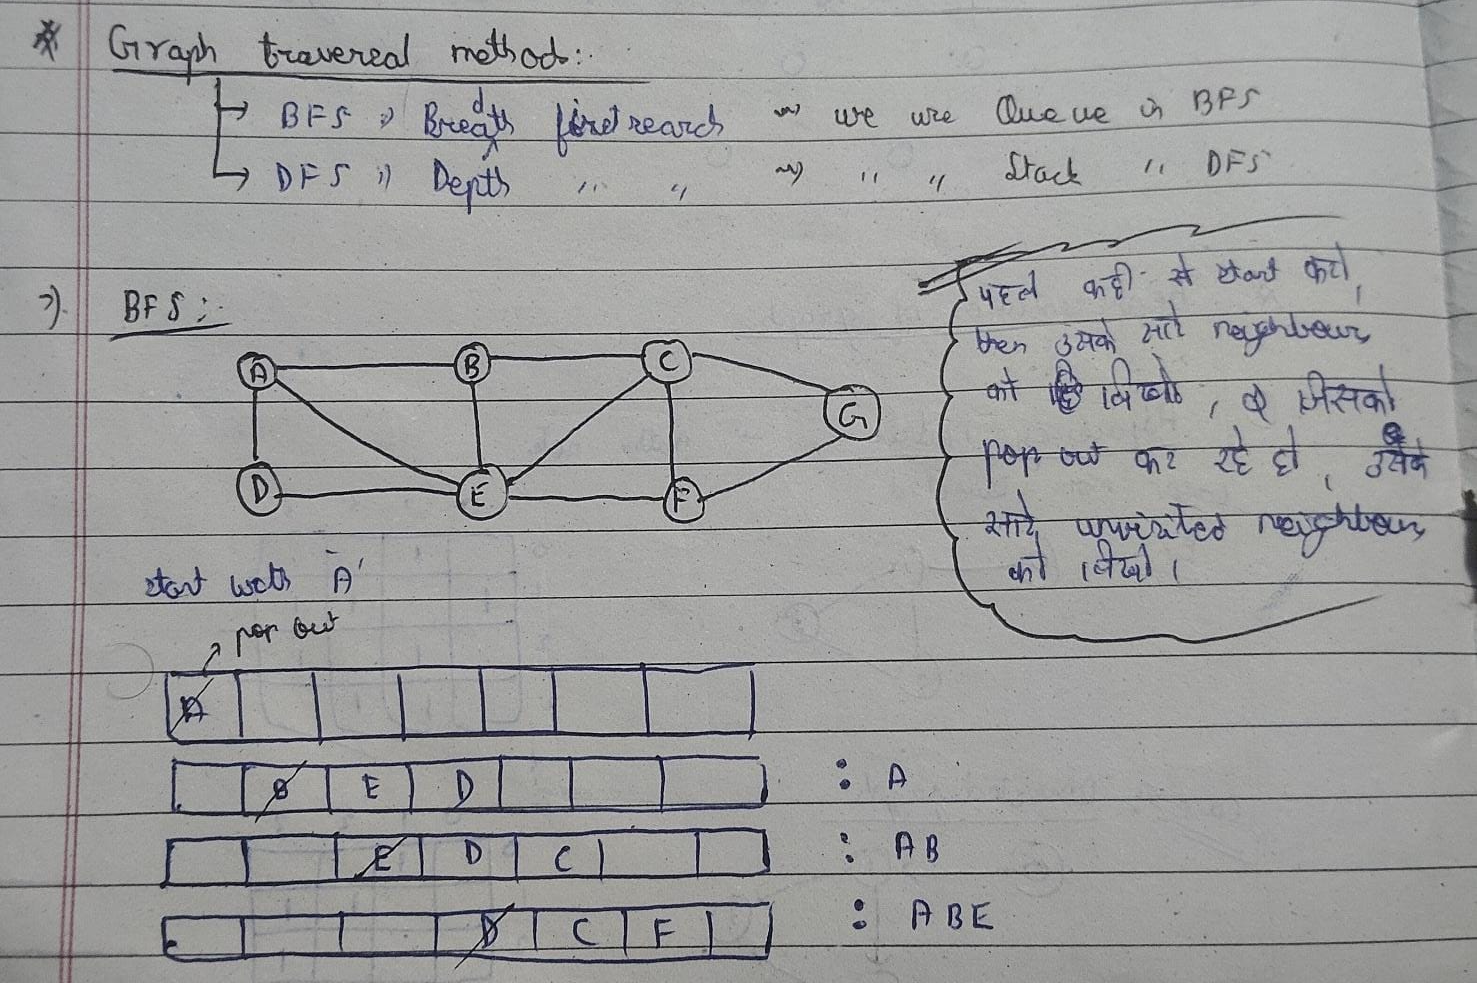 * Graph traveresal methods:-
→ BFS :) Breadth first search ~> we use Queue in BFS
→ DFS :)) Depth ,, ,, ~> ,, ,, Stack ,, DFS
पहले कही से start करो,
then उसके सारे neighbours
को लिखो, & जिसको
pop out कर रहे हो, उसके
सारे unvisited neighbours
को लिखो।
7). BFS:-
A B C
G
D E F
start with 'A'
pop out
A
B E D : A
E D C : AB
D C F : ABE